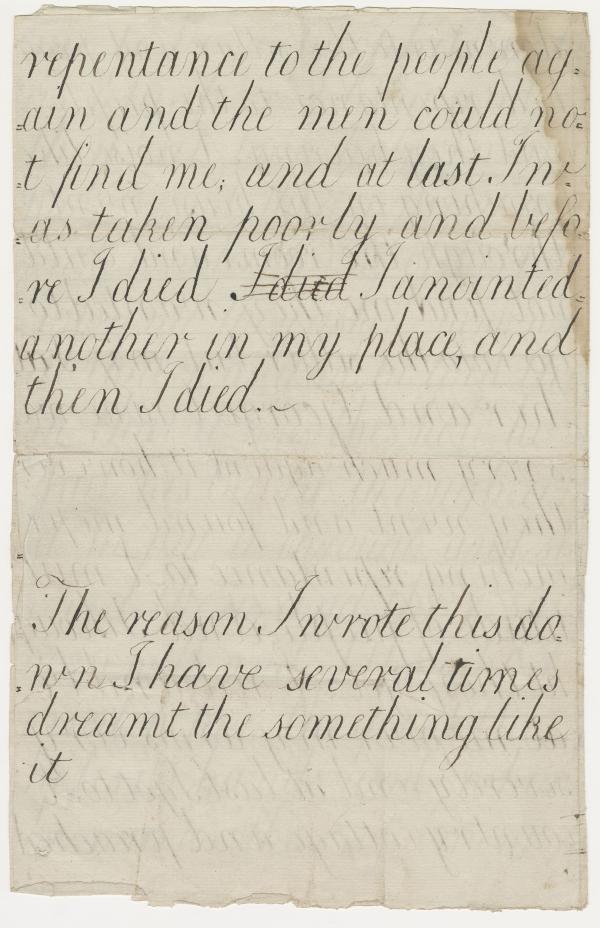 repentance to the people ag-
-ain and the men could no-
-t find me; and at last I w-
-as taken poorly and befo-
-re I died I died I anointed
another in my place, and
then I died.
The reason I wrote this do-
-wn I have several times
dreamt the something like
it